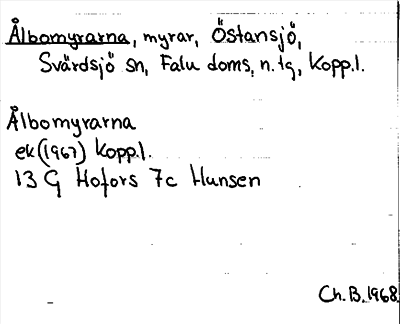 Ålbomyrarna, myrar, Östansjö,
Svärdsjö sn, Falu doms. n. tg, Kopp.l.
Ålbomyrarna
ek (1967) Kopp.l.
13 G Hofors 7c Hunsen
Ch. B. 1968